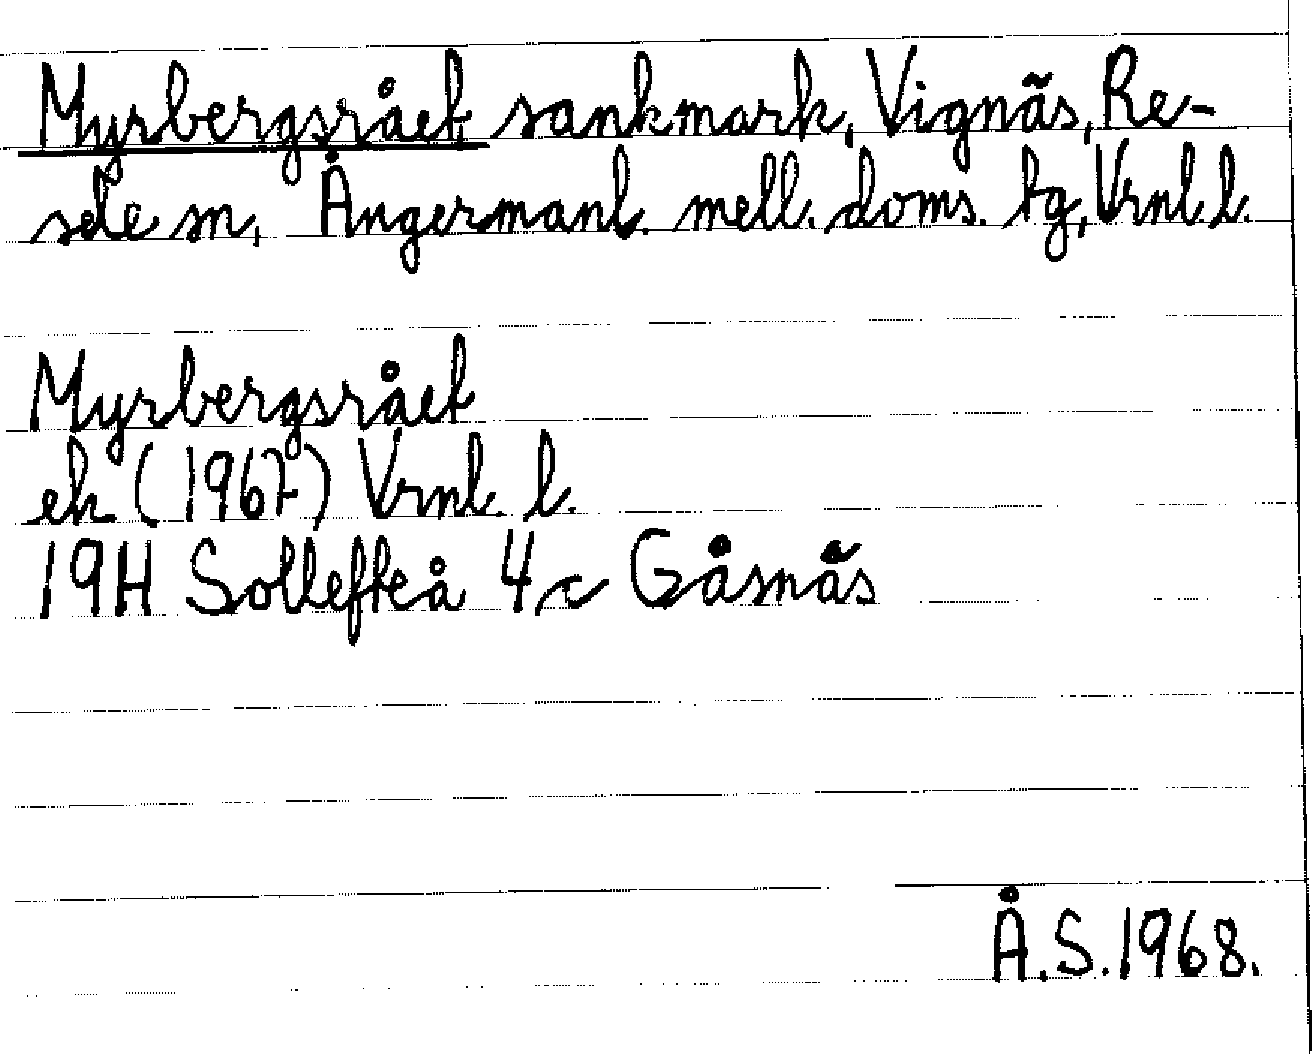 Myrbergsrået, sankmark, Vignäs, Re-
sele sn, Ångermanl. mell. doms. tg, Vrnl. l.
Myrbergsrået
ek (1967) Vrnl. l.
19H Sollefteå 4c Gåsnäs
Å.S. 1968.